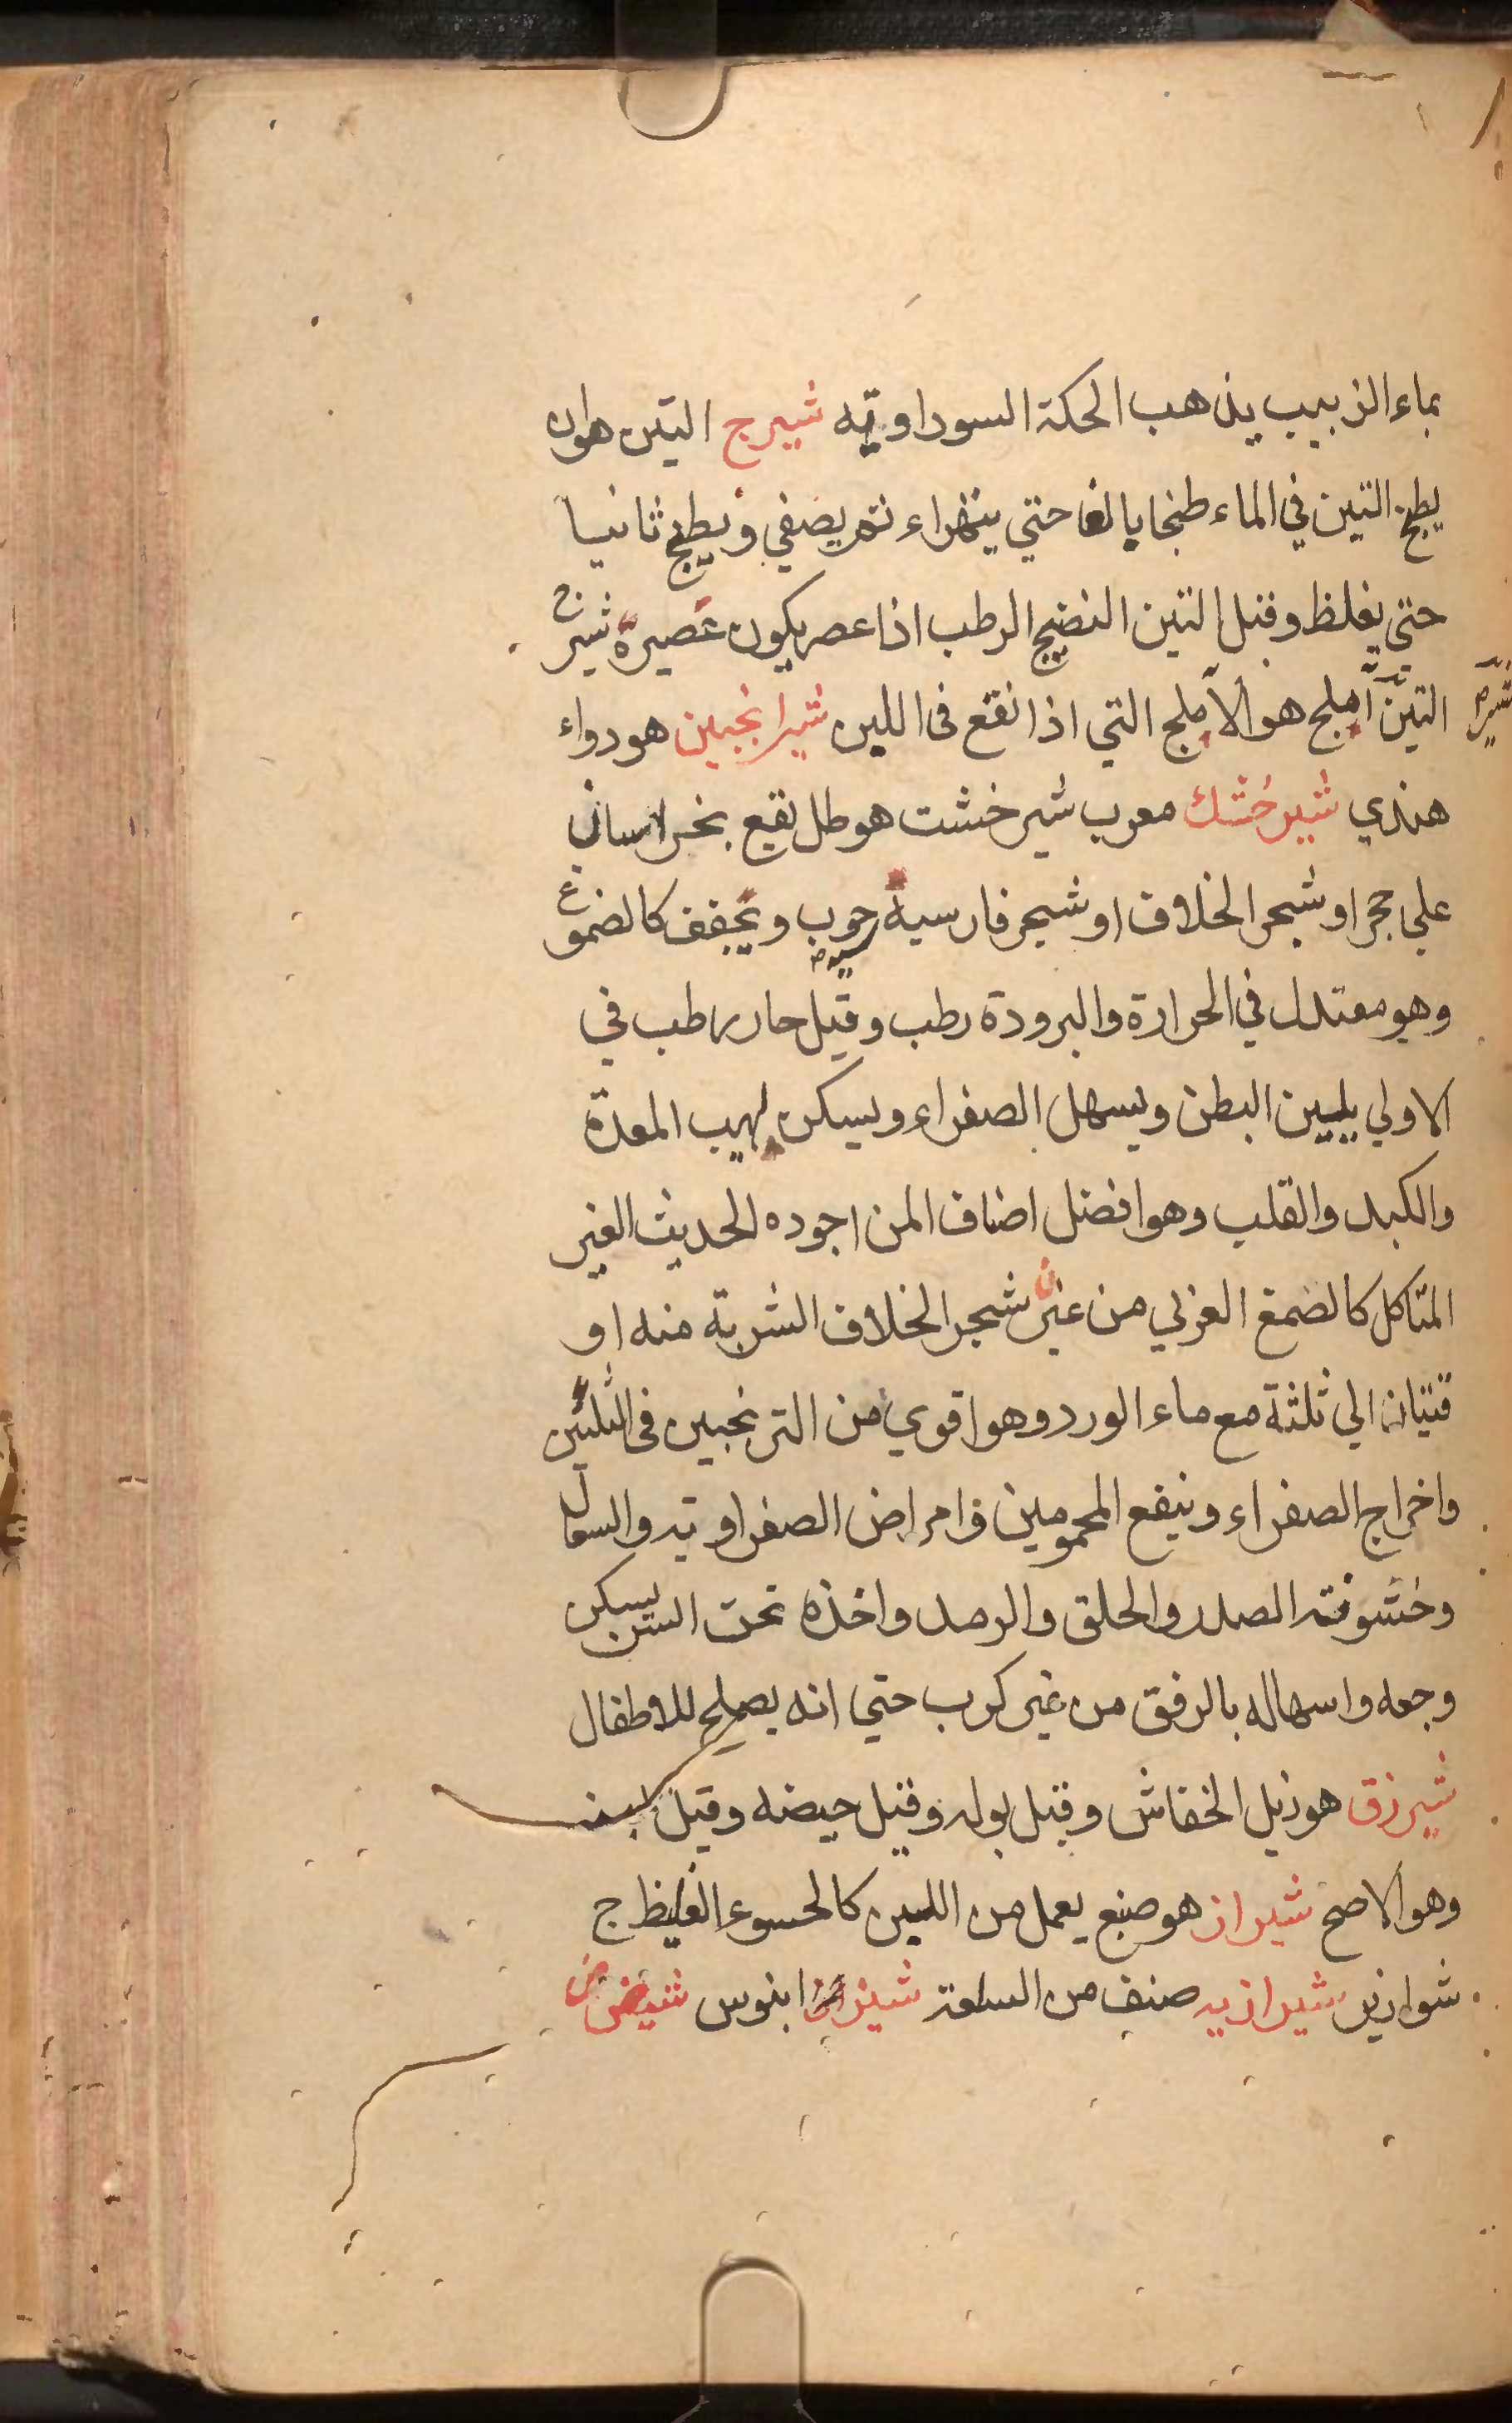 بماء الزبيب يذهب الحكة السوداويّه شيرج التين هوان
يطبخ التين في الماء طبخا بالغا حتي يتهراء ثم يصفي ويطبخ ثانيا
حتي يغلظ وقيل التين النضيج الرطب اذا عصر يكون عصيره شيرج
التين املج هو الاملج التي اذا نقع فى اللبن شيرانجبين هو دواء
شير
هندي شيرخشك معرب شيرخشت هو طل يقع بخراسان
علي حجر او شجر الخلاف او شجر فارسية جوب ويجفف كالضمغ
سيه
وهو معتدل في الحرارة والبرودة رطب وقيل حار رطب في
الاولي يليين البطن ويسهل الصفراء ويسكن لهيب المعدة
والكبد والقلب وهو افضل اضاف المن اجوده الحديث الغير
المتاكل كالضمغ العزلي من غير شجر الخلاف الشربة منه او
قتيان الي ثلثة مع ماء الورد وهو اقوي من الترنجبين فى التليين
واخراج الصفراء وينفع المحمومين وامراض الصفراويه والسعال
وخشونته الصدر والحلق والرمد واخذه تحت السن يسكن
وجعه واسهاله بالرفق من غير كرب حتي انه يصلح للاطفال
شيرزق هو زبل الخفاش وقيل بوله وقيل حيضه وقيل لبنه
وهو الاصح شيراز هو صبغ يعمل من اللبن كالحسوء الغليظ ج
شوازير شيرازيه صنف من السلعة شيز ابنوس شيص